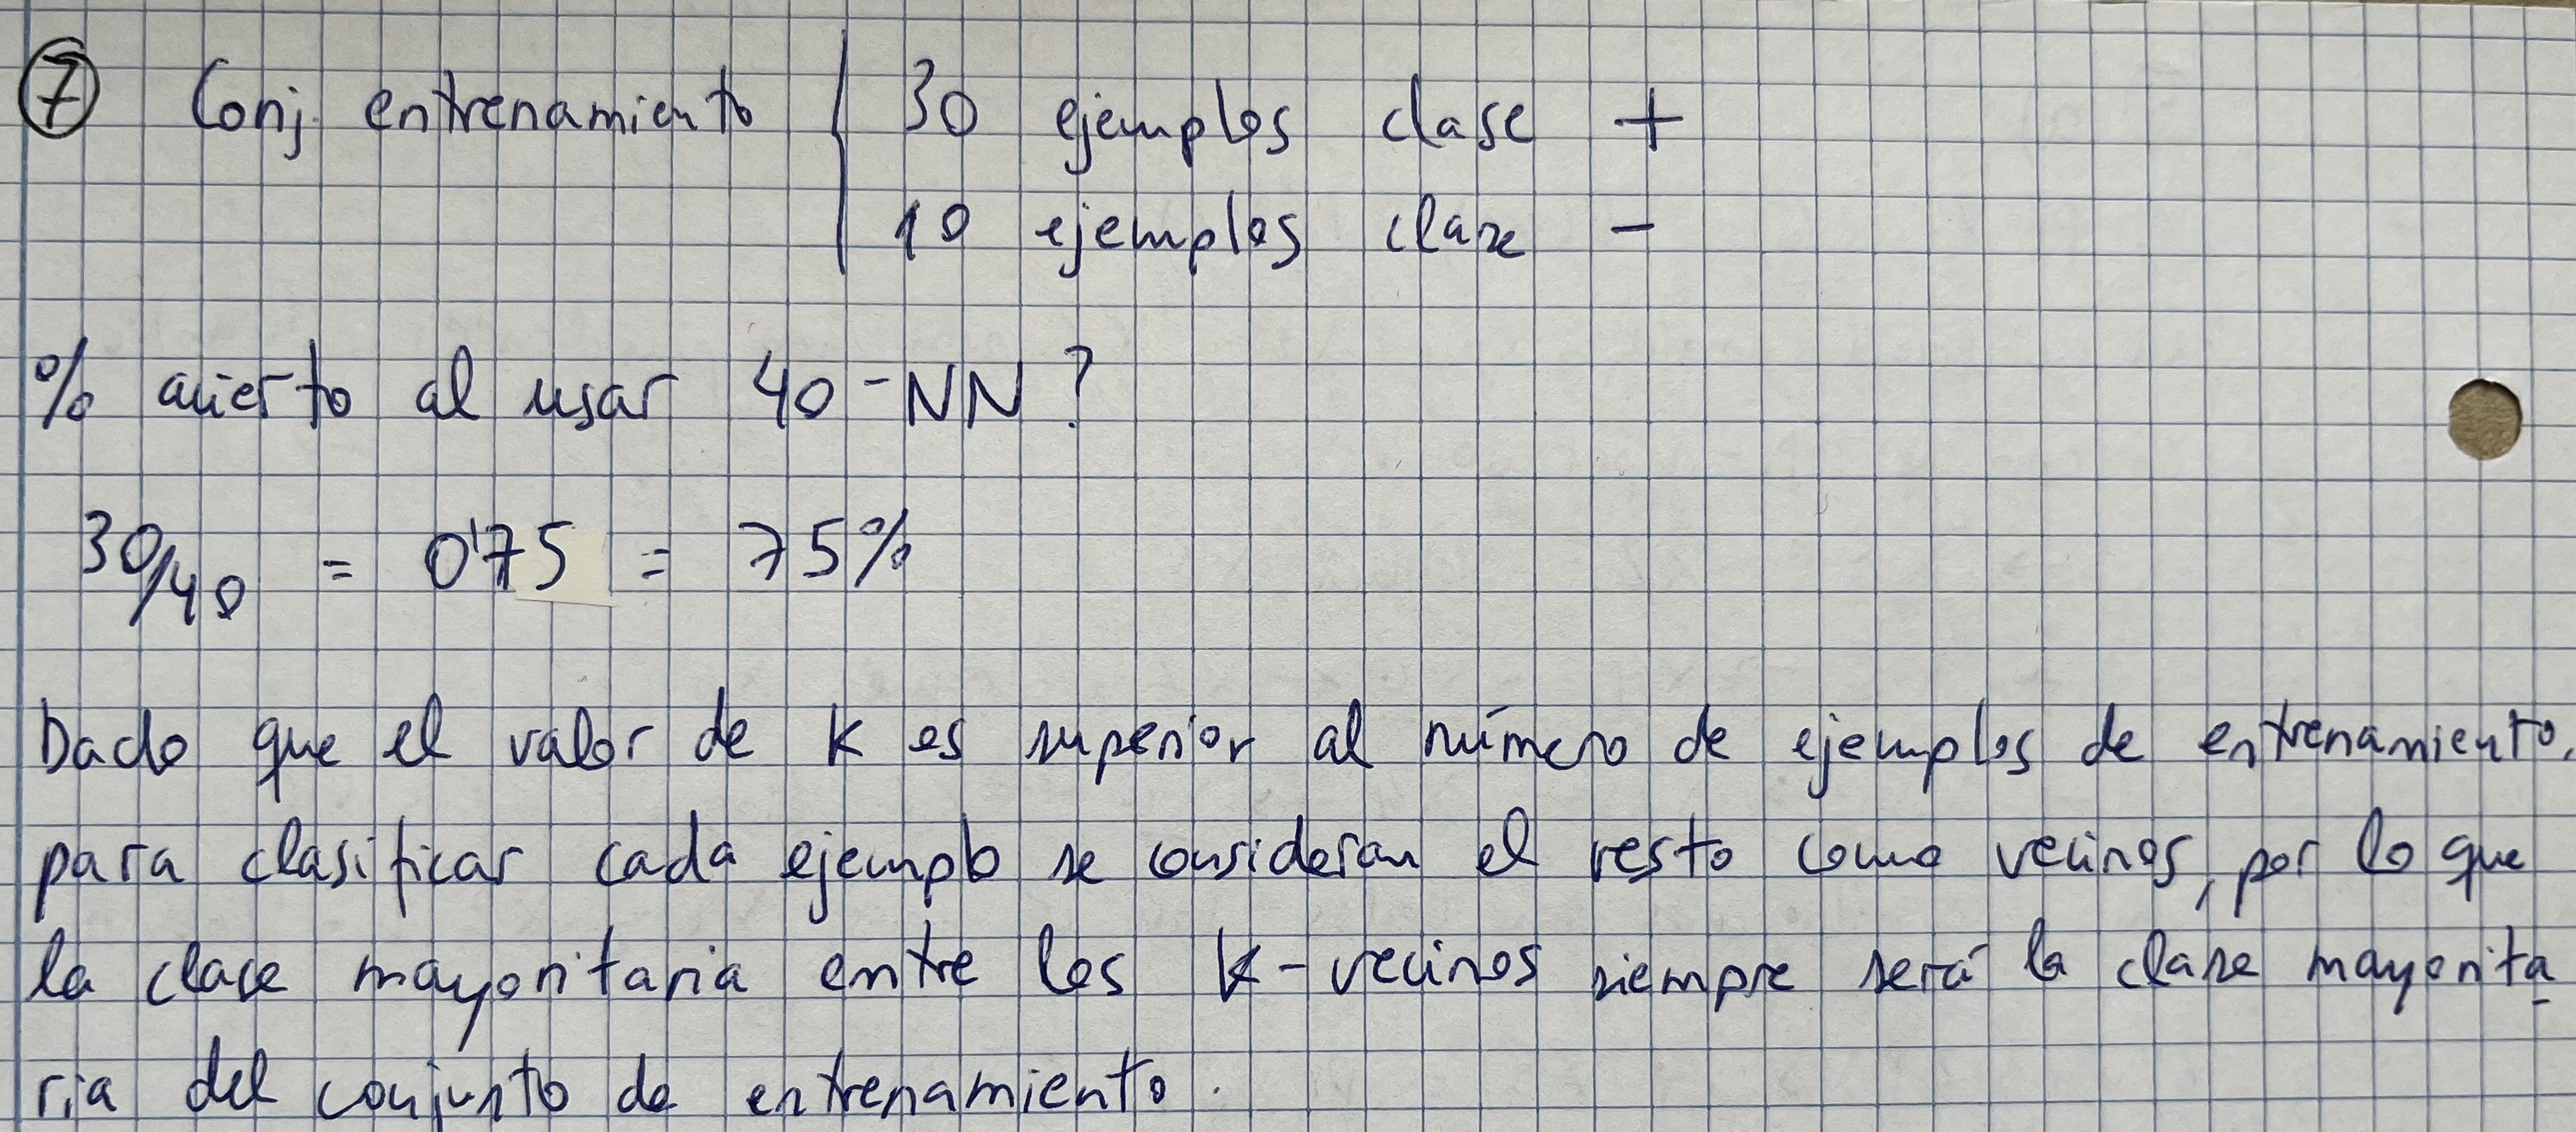 7 Conj. entrenamiento { 30 ejemplos clase +
10 ejemplos clase -
% acierto al usar 40-NN?
30/40 = 0'75 = 75%
Dado que el valor de K es superior al número de ejemplos de entrenamiento,
para clasificar cada ejemplo se consideran el resto como vecinos, por lo que
la clase mayoritaria entre los K-vecinos siempre será la clase mayorita
ria del conjunto de entrenamiento.